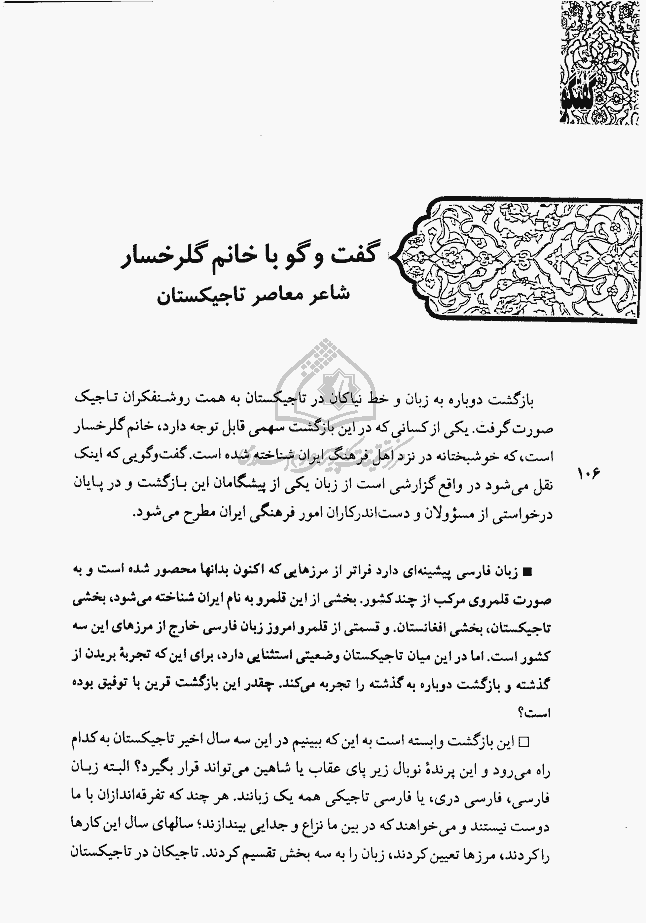 گفتگو
گفت و گو با خانم گلرخسار
شاعر معاصر تاجیکستان
بازگشت دوباره به زبان و خط نیاکان در تاجیکستان به همت روشنفکران تاجیک
صورت گرفت. یکی از کسانی که در این بازگشت سهمی قابل توجه دارد، خانم گلرخسار
است، که خوشبختانه در نزد اهل فرهنگ ایران شناخته شده است. گفت‌وگویی که اینک
۱۰۶
نقل می‌شود در واقع گزارشی است از زبان یکی از پیشگامان این بازگشت و در پایان
درخواستی از مسؤولان و دست‌اندرکاران امور فرهنگی ایران مطرح می‌شود.
■ زبان فارسی پیشینه‌ای دارد فراتر از مرزهایی که اکنون بدانها محصور شده است و به
صورت قلمروی مرکب از چند کشور. بخشی از این قلمرو به نام ایران شناخته می‌شود، بخشی
تاجیکستان، بخشی افغانستان. و قسمتی از قلمرو امروز زبان فارسی خارج از مرزهای این سه
کشور است. اما در این میان تاجیکستان وضعیتی استثنایی دارد، برای این که تجربهٔ بریدن از
گذشته و بازگشت دوباره به گذشته را تجربه می‌کند. چقدر این بازگشت قرین با توفیق بوده
است؟
□ این بازگشت وابسته است به این که ببینیم در این سه سال اخیر تاجیکستان به کدام
راه می‌رود و این پرندهٔ نوبال زیر پای عقاب یا شاهین می‌تواند قرار بگیرد؟ البته زبان
فارسی، فارسی دری، یا فارسی تاجیکی همه یک زبانند. هر چند که تفرقه‌اندازان با ما
دوست نیستند و می‌خواهند که در بین ما نزاع و جدایی بیندازند؛ سالهای سال این کارها
را کردند، مرزها تعیین کردند، زبان را به سه بخش تقسیم کردند. تاجیکان در تاجیکستان